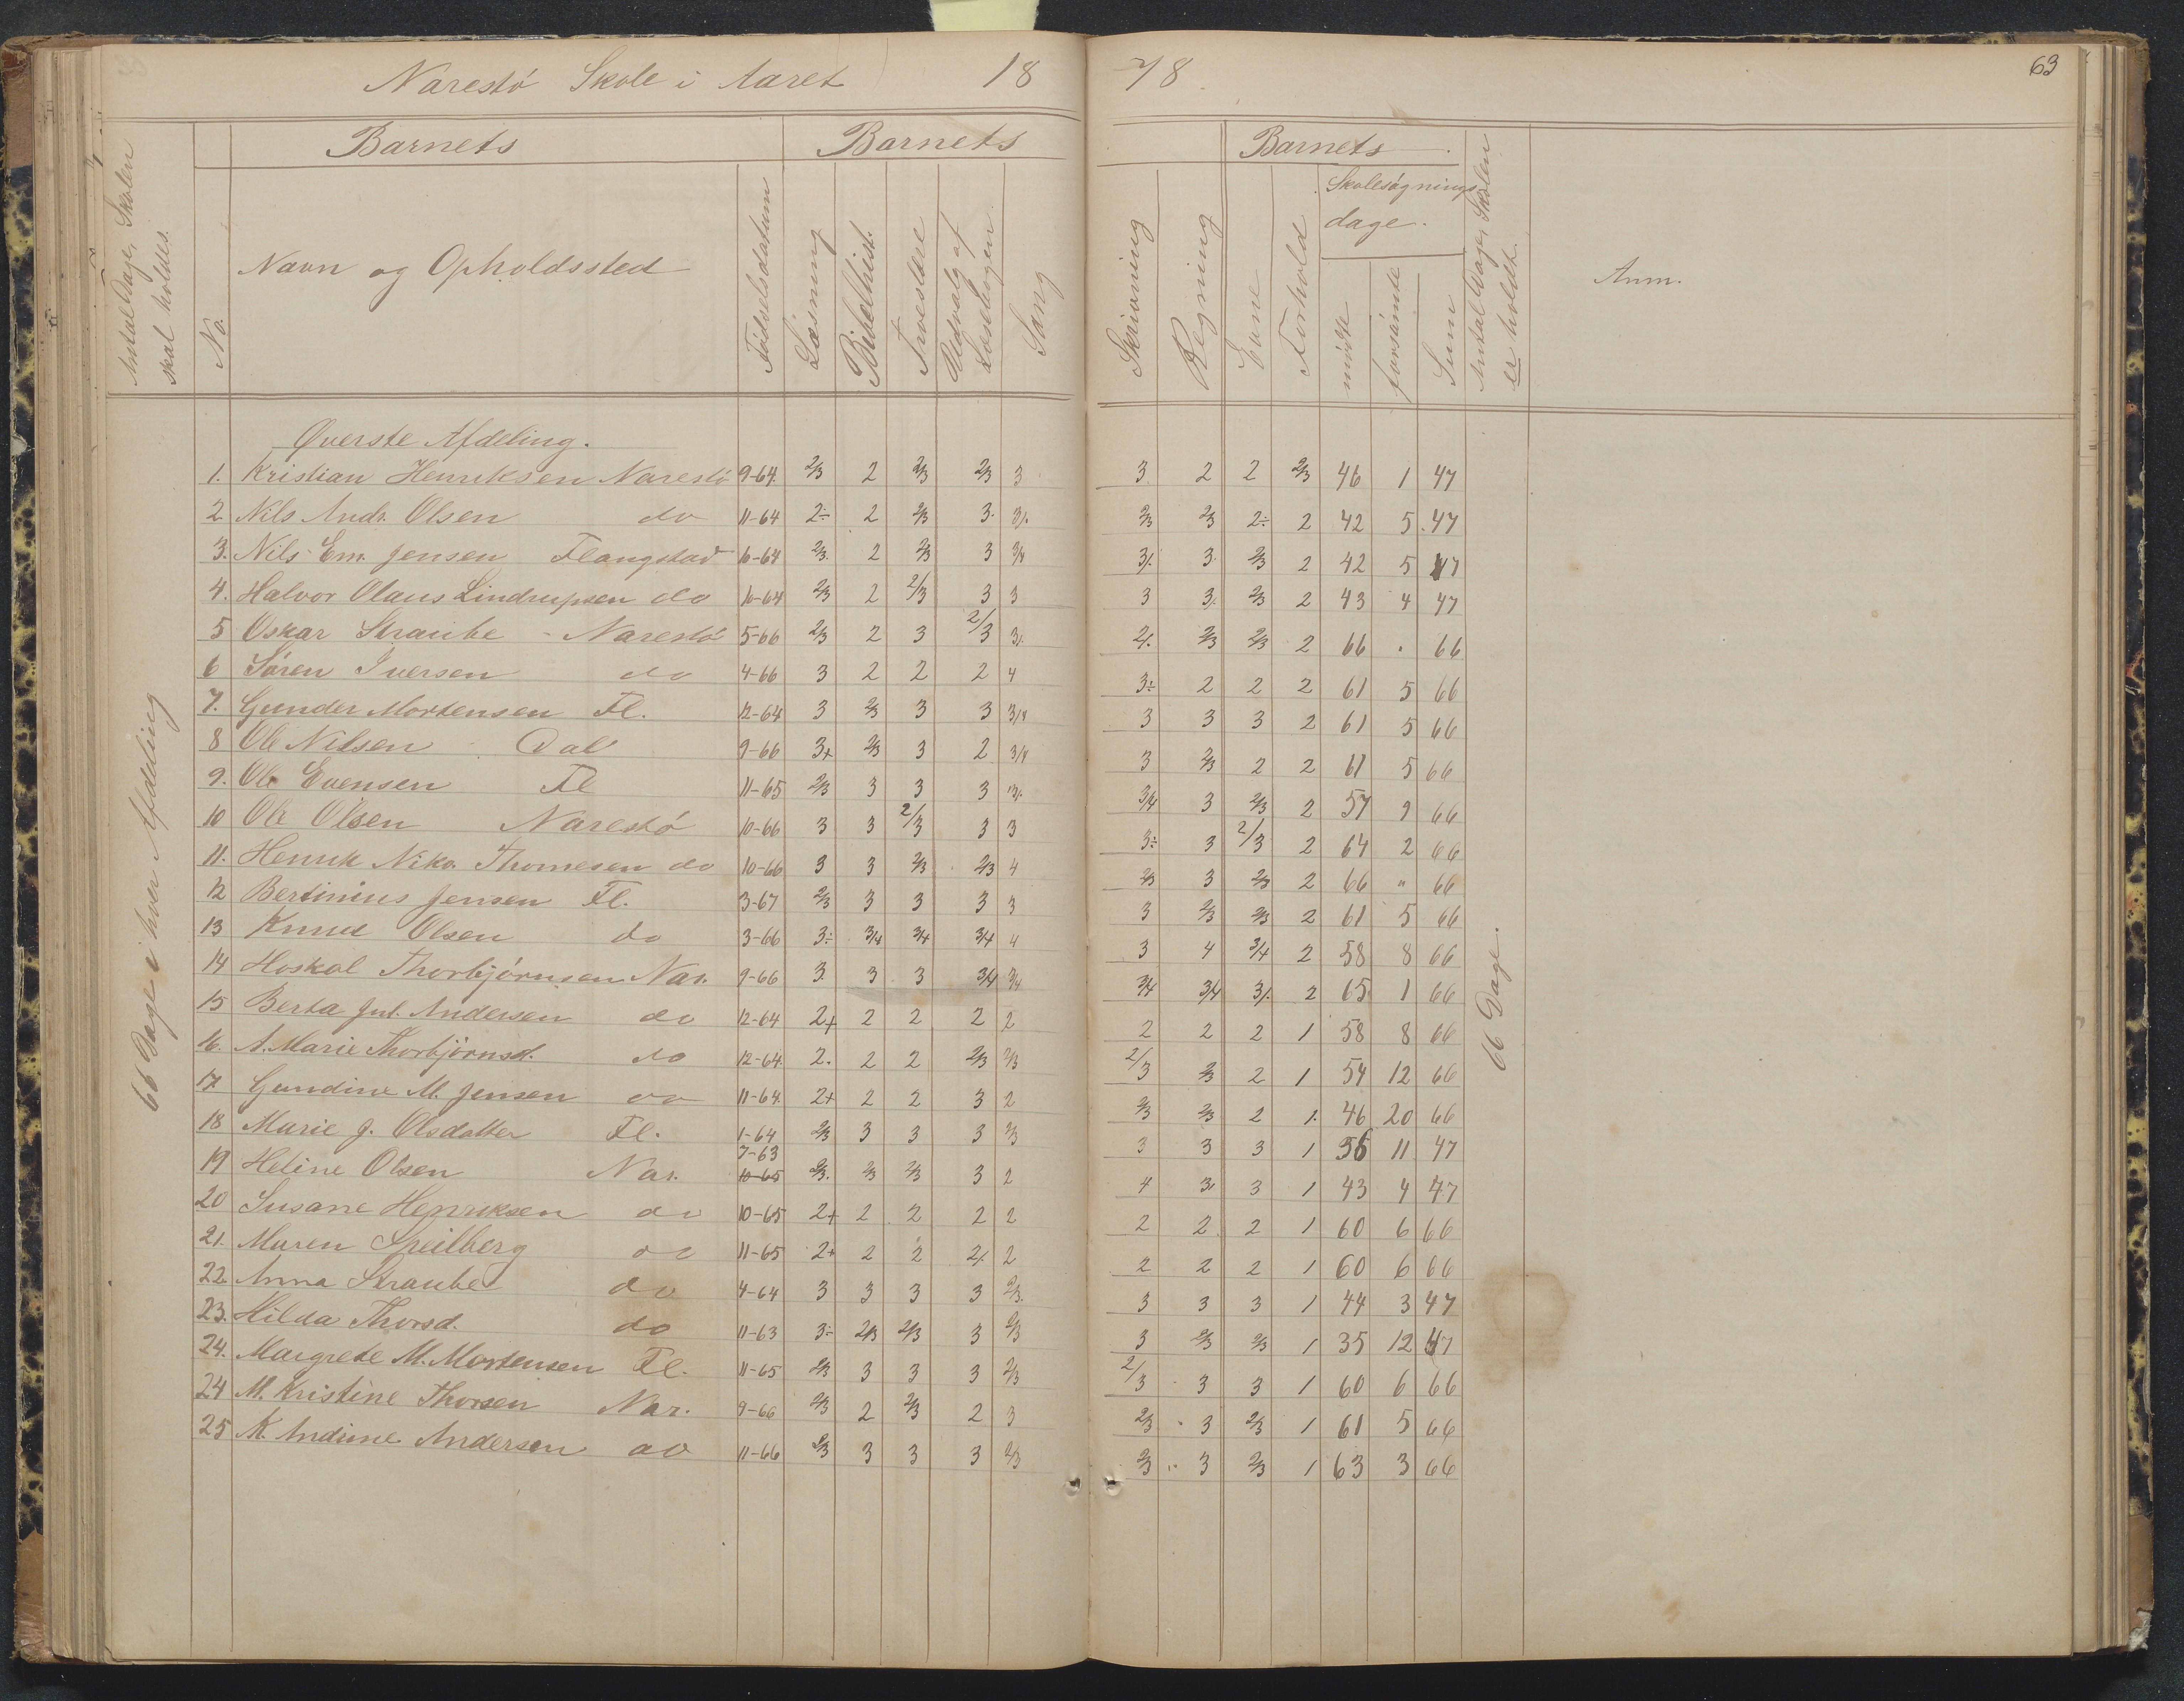 Narestö Skole i Aaret 18 78 63
Antal Dage, Skolen skal holdes.
No.
Barnets
Navn og Opholdssted
Födselsdatum
Barnets
Læsning
Bibelhist.
Troeslære
Udvalg af Læsebogen
Sang
Skrivning
Regning
Barnets
Evne
Forhold
Skolesøgnings
dage.
mödte
forsömte
Sum
Antal Dage, Skolen er holdt
Anm.
66 Dage i hver Afdeling
66 Dage.
Øverste Afdeling.
1. Kristian Henriksen Narestö 9-64. 2/3 2 2/3 2/3 3 3 2 2 2/3 46 1 47
2 Nils Andr. Olsen do 11-64 2÷ 2 2/3 3. 3/. 2/3 2/3 2÷ 2 42 5. 47
3. Nils Em. Jensen Flangstad 10-64 2/3. 2 2/3 3 3/4 3/. 3. 2/3 2 42 5 47
4. Halvor Olaus Lindrupsen do 10-64 2/3 2 2/3 3 3 3 3/. 2/3 2 43 4 47
5 Oskar Straube - Narestö 5-66 2/3 2 3 2/3 3/. 2/. 2/3 2/3 2 66 . 66
6 Sören Iversen do 4-66 3 2 2 2 4 3÷ 2 2 2 61 5 66
7. Gunder Mortensen Fl. 12-64 3 2/3 3 3 3/4 3 3 3 2 61 5 66
8 Ole Nilsen Dal 9-66 3+ 2/3 3 2 3/4 3 2/3 2 2 61 5 66
9. Ole Evensen Fl 11-65 2/3 3 3 3 3/. 3/4 3 2/3 2 57 9 66
10 Ole Olsen Narestö 10-66 3 3 2/3 3 3 3÷ 3 2/3 2 64 2 66
11. Henrik Niko. Thomesen do 10-66 3 3 2/3 2/3 4 2/3 3 2/3 2 66 " 66
12 Bertinius Jensen Fl. 3-67 2/3 3 3 3 3 3 2/3 2/3 2 61 5 66
13 Knud Olsen do 3-66 3÷ 3/4 3/4 3/4 4 3 4 3/4 2 58 8 66
14 Hoskol Thorbjörnsen Nar. 9-66 3. 3 3 3/4 3/4 3/4 3/4 3/. 2 65 1 66
15 Berta Jul. Andersen do 12-64 2+ 2 2 2 2 2 2 2 1 58 8 66
16. A. Marie Thorbjörnsd. do 12-64 2. 2 2 2/3 2/3 2/3 2/3 2 1 54 12 66
17. Gundine M. Jensen do 11-64 2+ 2 2 3 2 2/3 2/3 2 1. 46 20 66
18 Marie J. Olsdatter Fl. 1-64 2/3 3 3 3 2/3 3 3 3 1 36 11 47
7-63
19 Heline Olsen Nar. 10-65 2/3. 2/3 2/3 3 2 4 3/ 3 1 43 4 47
20 Susane Henriksen do 10-65 2+ 2 2 2 2 2 2 2 1 60 6 66
21. Maren Speilberg do 11-65 2+ 2 2 2/. 2 2 2 2 1 60 6 66
22 Anna Straube do 4-64 3 3 3 3 2/3. 3 3 3 1 44 3 47
23. Hilda Thorsd. do 11-63 3÷ 2/3 2/3 3 2/3 3 2/3 2/3 1 35 12 47
24. Margrete M. Mortensen Fl. 11-65 2/3 3 3 3 2/3 2/3 3 3 1 60 6 66
24 M. Kristine Thorsen Nar. 9-66 2/3 2 2/3 2 3 2/3 3 2/3 1 61 5 66
25 K. Andrine Andersen do 11-66 2/3 3 3 3 2/3 2/3 3 2/3 1 63 3 66